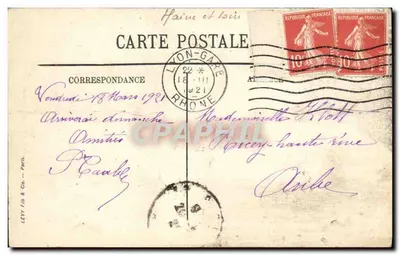 Maine et Loire
CARTE POSTALE
CORRESPONDANCE
LYON-GARE
22 *
18 III
1921
RHONE
REPUBLIQUE FRANÇAISE
10
REPUBLIQUE FRANÇAISE
10
Vendredi 18 Mars 1921
Arriverai dimanche
Amitiés
Mademoiselle
Ricey-haute-rive
Aube
LEVY Fils & Cie - Paris
Delcampe